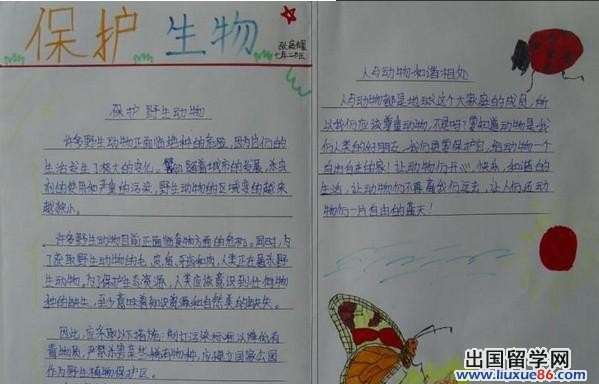 保护 生物
七年二班
保护野生动物
许多野生动物正面临绝种的危险，因为它们的
生活发生了极大的变化。随着城市的发展，杀虫
剂的使用和严重的污染，野生动物的区域变的越来
越狭小。
许多野生动物目前正面临食物方面的危机。同时，为
了获取野生动物的毛、皮、角、牙齿和肉，人类正在屠杀野
生动物。为了保护生态资源，人类应该意识到任何物
种的缺失，至少意味着知识资源和自然美的缺失。
因此，应采取以下措施：制订污染标准以降低有
毒物质，严禁杀害某些稀有物种，应建立国家公园
作为野生植物保护区。
人与动物和谐相处
人与动物都是地球这个大家庭的成员，所
以我们应该尊重动物，不是吗？要知道动物是我
们人类的好朋友，我们要保护它，给动物一个
自由自在的家！让动物们开心，快乐，和谐的
生活，让动物们不再离我们远去，让人们还动
物们一片自由的蓝天！
出国留学网
www.liuxue86.com